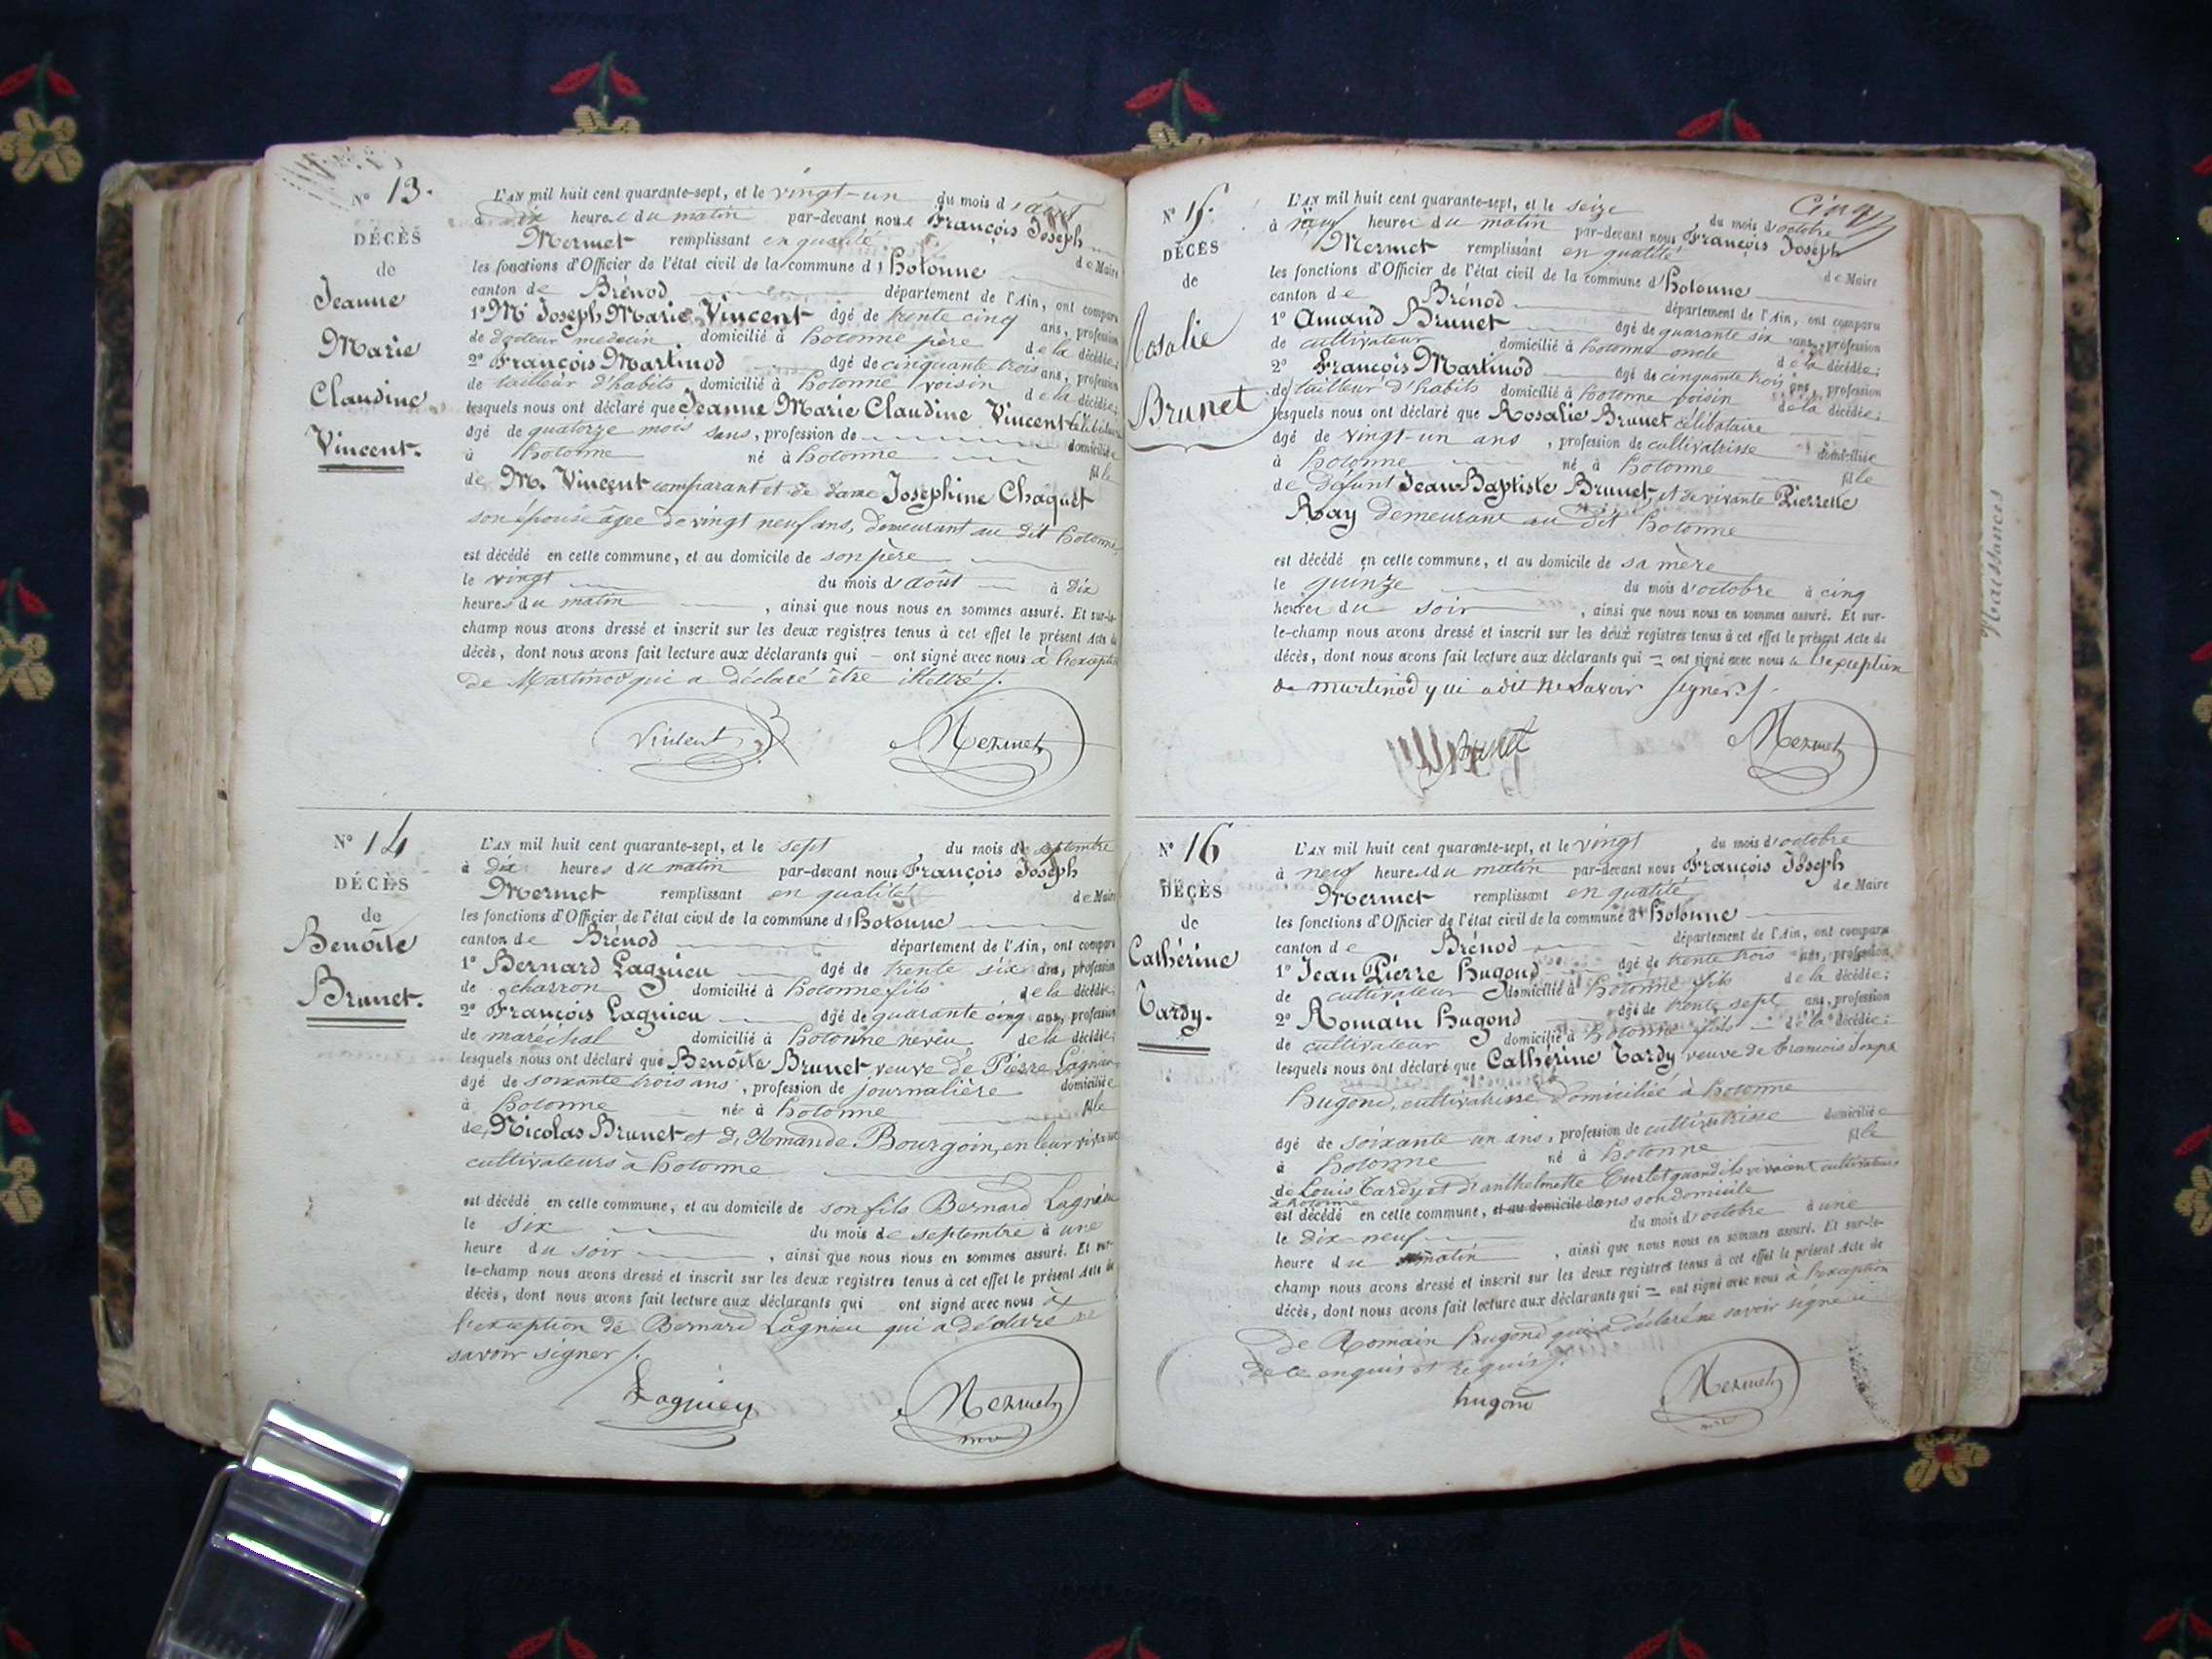 N° 13.
DÉCÈS
de
Jeanne
Marie
Claudine
Vincent.
L'AN mil huit cent quarante-sept, et le vingt-un du mois d'août
à dix heures du matin par-devant nous François Joseph
Mermet remplissant en qualité de Maire
les fonctions d'Officier de l'état civil de la commune d'hotonne
canton de Brénod département de l'Ain, ont comparu
1° Mr Joseph Marie Vincent âgé de trente cinq ans, profession
de docteur medecin domicilié à hotonne père de la décédée;
2° François Martinod âgé de cinquante trois ans, profession
de tailleur d'habits domicilié à hotonne voisin de la décédée;
lesquels nous ont déclaré que Jeanne Marie Claudine Vincent célibataire
âgé de quatorze mois sans, profession de domiciliée
à hotonne né à hotonne fille
de M. Vincent comparant et de dame Josephine Chaquet
son épouse âgée de vingt neuf ans, demeurant au dit hotonne,
est décédé en cette commune, et au domicile de son père
le vingt du mois d'août à dix
heures du matin, ainsi que nous nous en sommes assuré. Et sur-le-
champ nous avons dressé et inscrit sur les deux registres tenus à cet effet le présent Acte de
décès, dont nous avons fait lecture aux déclarants qui ont signé avec nous à l'exception
de Martinod qui a déclaré être illettré.
Vincent
Mermet
N° 14
DÉCÈS
de
Benoîte
Brunet.
L'AN mil huit cent quarante-sept, et le sept du mois de septembre
à dix heures du matin par-devant nous François Joseph
Mermet remplissant en qualité de Maire
les fonctions d'Officier de l'état civil de la commune d'hotonne
canton de Brénod département de l'Ain, ont comparu
1° Bernard Lagnieu âgé de trente six ans, profession
de charron domicilié à hotonne fils de la décédée;
2° François Lagnieu âgé de quarante cinq ans, profession
de maréchal domicilié à hotonne neveu de la décédée;
lesquels nous ont déclaré que Benoîte Brunet veuve de Pierre Lagnieu
âgé de soixante trois ans, profession de journalière domiciliée
à hotonne née à hotonne fille
de Nicolas Brunet et de Bourgoin, en leur vivant
cultivateurs à hotonne
est décédé en cette commune, et au domicile de son fils Bernard Lagnieu
le six du mois de septembre à une
heure du soir, ainsi que nous nous en sommes assuré. Et sur-
le-champ nous avons dressé et inscrit sur les deux registres tenus à cet effet le présent Acte de
décès, dont nous avons fait lecture aux déclarants qui ont signé avec nous à
l'exception de Bernard Lagnieu qui a déclaré ne
savoir signer.
Lagnieu
Mermet
N° 15.
DÉCÈS
de
Rosalie
Brunet
Cinq
L'AN mil huit cent quarante-sept, et le seize du mois d'octobre
à neuf heures du matin par-devant nous François Joseph
Mermet remplissant en qualité de Maire
les fonctions d'Officier de l'état civil de la commune d'hotonne
canton de Brénod département de l'Ain, ont comparu
1° Amand Brunet âgé de quarante six ans, profession
de cultivateur domicilié à hotonne oncle de la décédée;
2° François Martinod âgé de cinquante trois ans, profession
de tailleur d'habits domicilié à hotonne voisin de la décédée;
lesquels nous ont déclaré que Rosalie Brunet célibataire
âgé de vingt-un ans, profession de cultivatrisse domiciliée
à hotonne né à hotonne fille
de défunt Jean Baptiste Brunet, et de vivante Pierrette
Ray demeurant au dit hotonne
est décédé en cette commune, et au domicile de sa mère
le quinze du mois d'octobre à cinq
heures du soir, ainsi que nous nous en sommes assuré. Et sur-
le-champ nous avons dressé et inscrit sur les deux registres tenus à cet effet le présent Acte de
décès, dont nous avons fait lecture aux déclarants qui ont signé avec nous à l'exception
de martinod qui a dit ne savoir signer.
Brunet
Mermet
N° 16
DÉCÈS
de
Cathérine
Tardy.
L'AN mil huit cent quarante-sept, et le vingt, du mois d'octobre
à neuf heures du matin par-devant nous François Joseph
Mermet remplissant en qualité de Maire
les fonctions d'Officier de l'état civil de la commune d'hotonne
canton de Brénod département de l'Ain, ont comparu
1° Jean Pierre hugond âgé de trente trois ans, profession
de cultivateur domicilié à hotonne fils de la décédée;
2° Romain hugond âgé de trente sept ans, profession
de cultivateur domicilié à hotonne fils de la décédée;
lesquels nous ont déclaré que Cathérine Tardy veuve de François Joseph
hugond, cultivatrisse domiciliée à hotonne
âgé de soixante un ans, profession de cultivatrisse domiciliée
à hotonne né à hotonne fille
de Louis Tardy et d'anthelmette Curtet quand ils vivaient cultivateurs
à hotonne
est décédé en cette commune, et au domicile dans son domicile
le dix neuf du mois d'octobre à une
heure du matin, ainsi que nous nous en sommes assuré. Et sur-le-
champ nous avons dressé et inscrit sur les deux registres tenus à cet effet le présent Acte de
décès, dont nous avons fait lecture aux déclarants qui ont signé avec nous à l'exception
de Romain hugond qui a déclaré ne savoir signer
de ce enquis et requis.
hugond
Mermet
Naissances